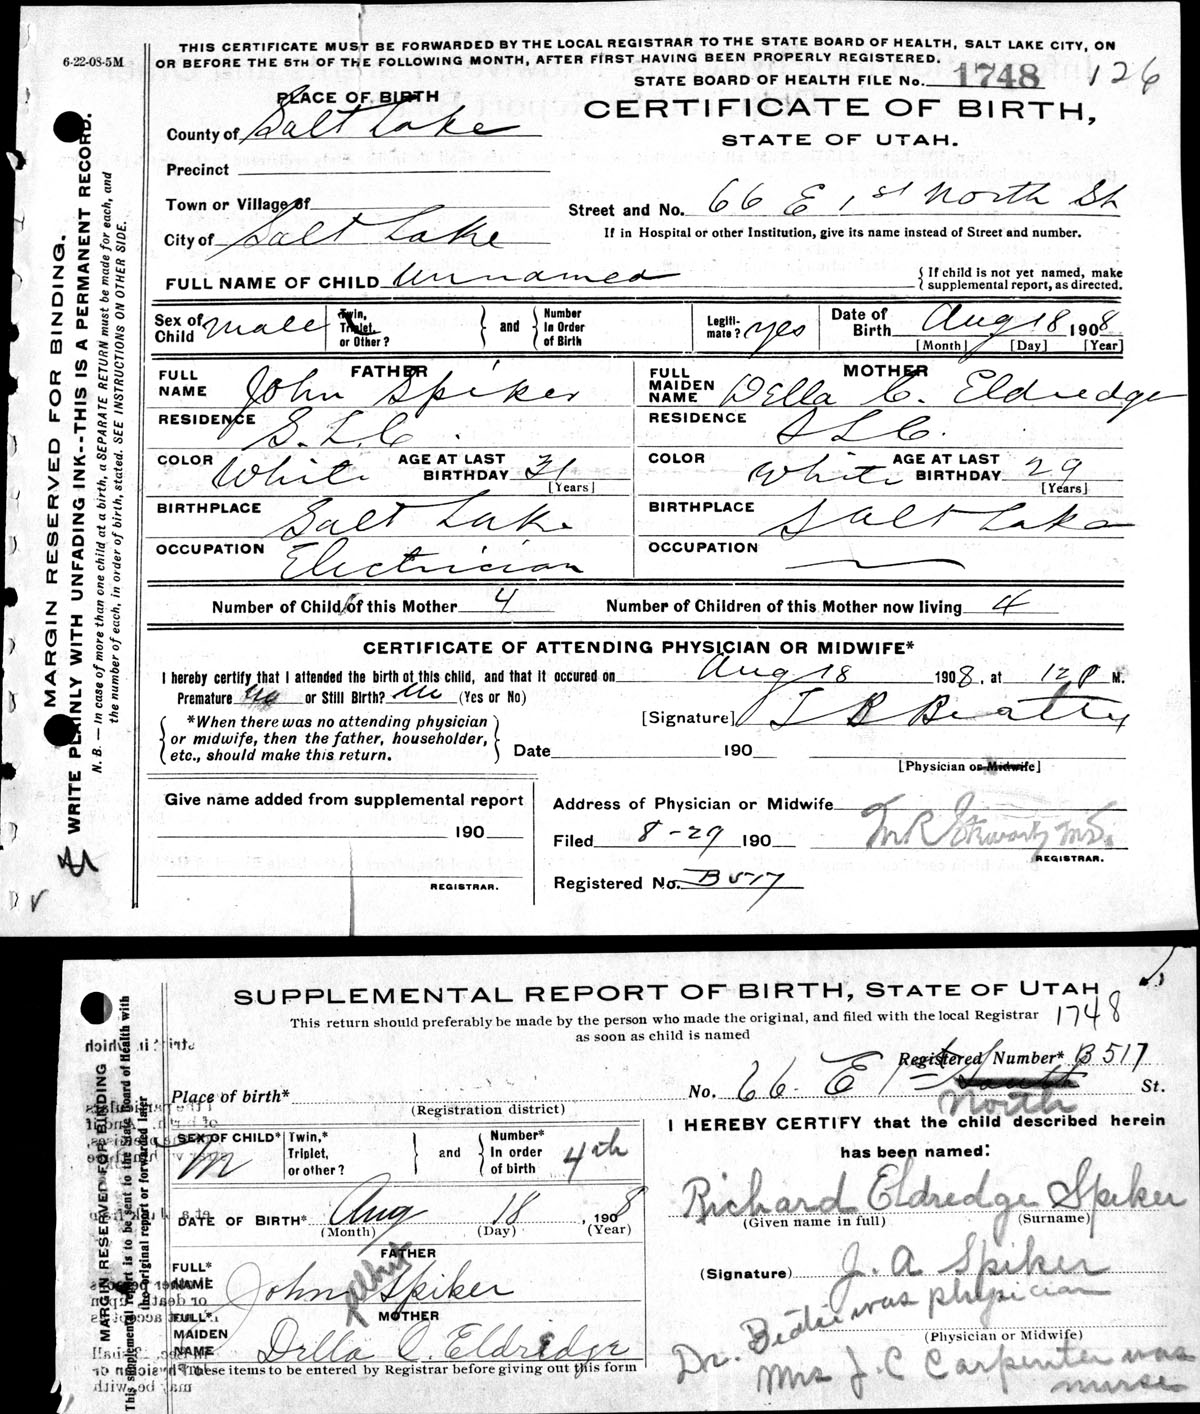 6-22-08-5M
THIS CERTIFICATE MUST BE FORWARDED BY THE LOCAL REGISTRAR TO THE STATE BOARD OF HEALTH, SALT LAKE CITY, ON
OR BEFORE THE 5TH OF THE FOLLOWING MONTH, AFTER FIRST HAVING BEEN PROPERLY REGISTERED.
STATE BOARD OF HEALTH FILE No. 1748 126
PLACE OF BIRTH
CERTIFICATE OF BIRTH,
STATE OF UTAH.
County of Salt Lake
Precinct
Town or Village of
Street and No. 66 E 1st North St
City of Salt Lake
If in Hospital or other Institution, give its name instead of Street and number.
FULL NAME OF CHILD Unnamed
{ If child is not yet named, make
supplemental report, as directed.
Sex of Child Male
Twin, Triplet, or Other?
and
Number In Order of Birth
Legiti-mate? yes
Date of Birth Aug 18 1908
[Month] [Day] [Year]
FATHER
FULL NAME John Spiker
RESIDENCE S. L. C.
COLOR White AGE AT LAST BIRTHDAY 31
[Years]
BIRTHPLACE Salt Lake
OCCUPATION Electrician
MOTHER
FULL MAIDEN NAME Della C. Eldredge
RESIDENCE S L C.
COLOR White AGE AT LAST BIRTHDAY 29
[Years]
BIRTHPLACE Salt Lake
OCCUPATION
Number of Child of this Mother 4 Number of Children of this Mother now living 4
CERTIFICATE OF ATTENDING PHYSICIAN OR MIDWIFE*
I hereby certify that I attended the birth of this child, and that it occured on Aug 18 1908, at 12 P M.
Premature No or Still Birth? No (Yes or No)
*When there was no attending physician
or midwife, then the father, householder,
etc., should make this return.
[Signature] T B Beatty
Date 190
[Physician or Midwife]
Give name added from supplemental report
190
REGISTRAR.
Address of Physician or Midwife
Filed 8-29 190
M R Stewart M.D.
REGISTRAR.
Registered No. B 517
MARGIN RESERVED FOR BINDING.
WRITE PLAINLY WITH UNFADING INK--THIS IS A PERMANENT RECORD.
N. B. — In case of more than one child at a birth, a SEPARATE RETURN must be made for each, and
the number of each, in order of birth, stated. SEE INSTRUCTIONS ON OTHER SIDE.
SUPPLEMENTAL REPORT OF BIRTH, STATE OF UTAH
This return should preferably be made by the person who made the original, and filed with the local Registrar
as soon as child is named
1748
Registered Number* B 517
Place of birth*
(Registration district)
No. 66. E 1st South St.
North
SEX OF CHILD* M
Twin,* Triplet, or other?
and
Number* In order of birth 4th
DATE OF BIRTH* Aug 18, 1908
(Month) (Day) (Year)
FATHER
FULL* NAME John Spiker
MOTHER
FULL* MAIDEN NAME Della C. Eldredge
These items to be entered by Registrar before giving out this form
I HEREBY CERTIFY that the child described herein
has been named:
Richard Eldredge Spiker
(Given name in full) (Surname)
(Signature) J. A Spiker
(Physician or Midwife)
Dr. Beatie was physician
Mrs J. C Carpenter was
nurse
MARGIN RESERVED FOR BINDING
This supplemental report is to be sent to the State Board of Health with
the original report or forwarded later